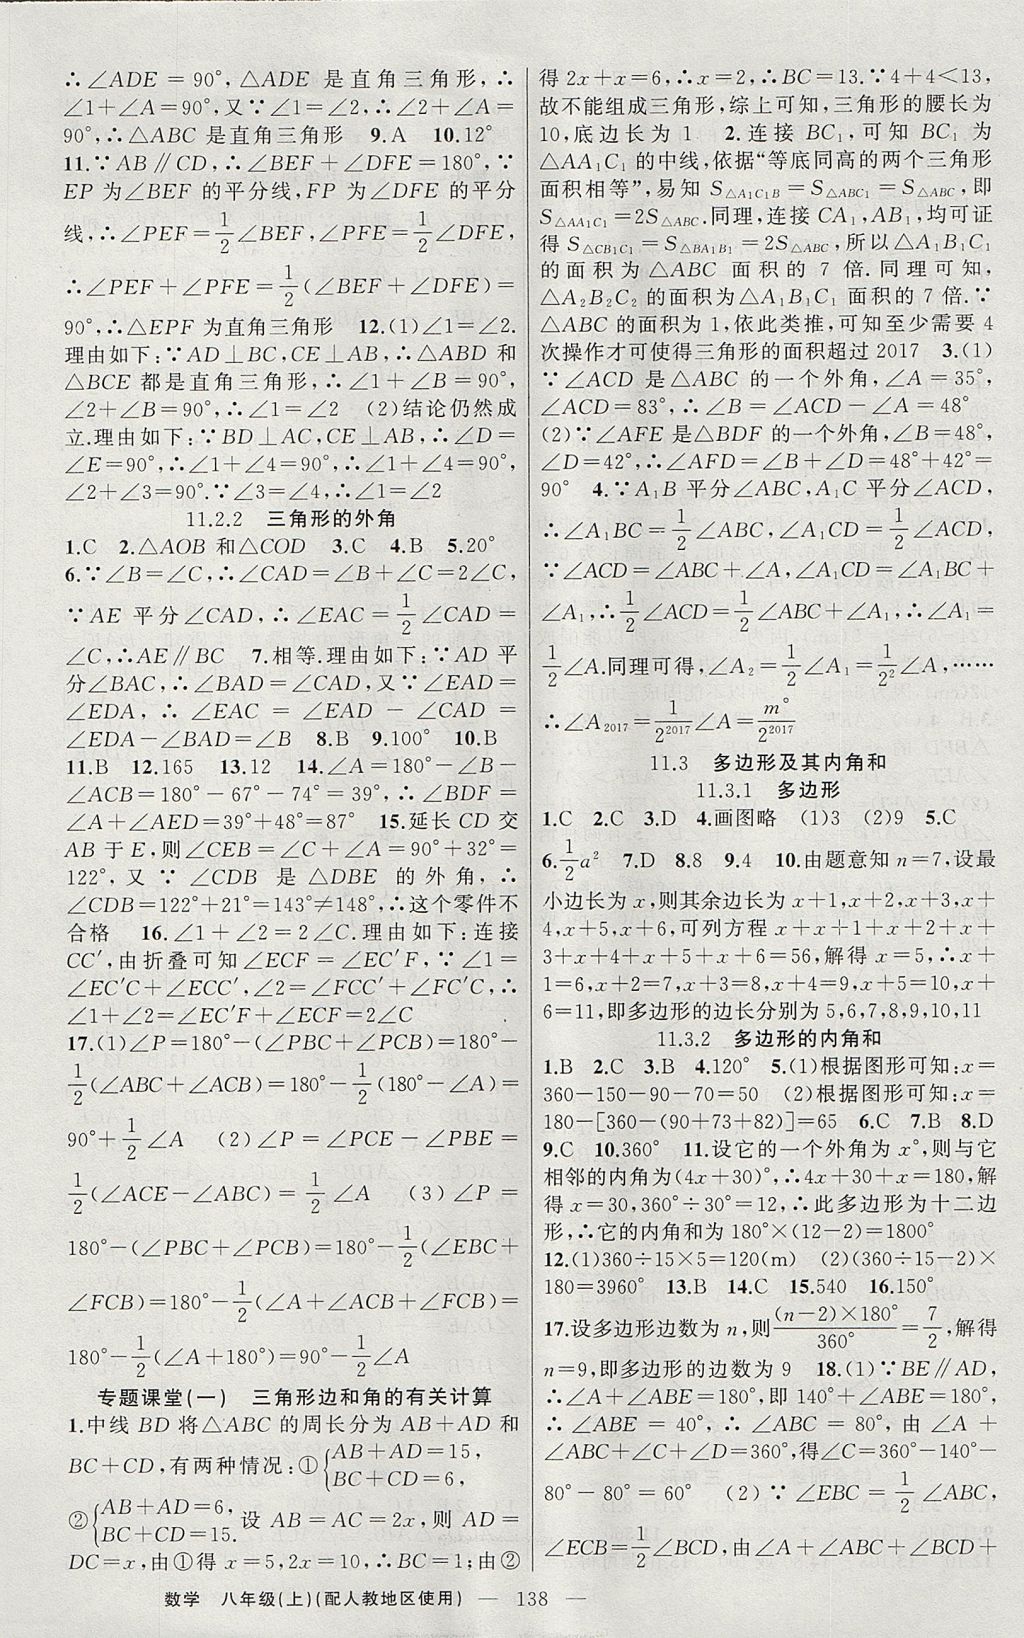 ∴∠ADE=90°,△ADE 是直角三角形,∴
∠1+∠A=90°,又∵∠1=∠2,∴∠2+∠A=
90°,∴△ABC是直角三角形 9.A 10.12°
11.∵AB∥CD,∴∠BEF+∠DFE=180°,∵
EP 为∠BEF 的平分线,FP 为∠DFE 的平分
线,∴∠PEF=1/2∠BEF,∠PFE=1/2∠DFE,
∴∠PEF+∠PFE=1/2(∠BEF+∠DFE)=
90°,∴△EPF为直角三角形 12.(1)∠1=∠2.
理由如下:∵AD⊥BC,CE⊥AB,∴△ABD 和
△BCE 都是直角三角形,∴∠1+∠B=90°,
∠2+∠B=90°,∴∠1=∠2 (2)结论仍然成
立.理由如下:∵BD⊥AC,CE⊥AB,∴∠D=
∠E=90°,∴∠1+∠4=90°,∴∠1+∠4=90°,
∠2+∠3=90°.∵∠3=∠4,∴∠1=∠2
11.2.2 三角形的外角
1.C 2.△AOB 和△COD 3.C 4.B 5.20°
6.∵∠B=∠C,∴∠CAD=∠B+∠C=2∠C,
∵AE 平分∠CAD,∴∠EAC=1/2∠CAD=
∠C,∴AE∥BC 7.相等.理由如下:∵AD 平
分∠BAC,∴∠BAD=∠CAD,又∵∠EAD=
∠EDA,∴∠EAC=∠EAD-∠CAD=
∠EDA-∠BAD=∠B 8.B 9.100° 10.B
11.B 12.165 13.12 14.∠A=180°-∠B-
∠ACB=180°-67°-74°=39°,∴∠BDF=
∠A+∠AED=39°+48°=87° 15.延长CD交
AB于E,则∠CEB=∠C+∠A=90°+32°=
122°,又∵∠CDB 是△DBE 的外角,∴
∠CDB=122°+21°=143°≠148°,∴这个零件不
合格 16.∠1+∠2=2∠C.理由如下:连接
CC′,由折叠可知∠ECF=∠EC′F,∵∠1=
∠EC′C+∠ECC′,∠2=∠FCC′+∠FC′C,∴
∠1+∠2=∠EC′F+∠ECF=2∠C
17.(1)∠P=180°-(∠PBC+∠PCB)=180°-
1/2(∠ABC+∠ACB)=180°-1/2(180°-∠A)=
90°+1/2∠A (2)∠P=∠PCE-∠PBE=
1/2(∠ACE-∠ABC)=1/2∠A (3)∠P=
180°-(∠PBC+∠PCB)=180°-1/2(∠EBC+
∠FCB)=180°-1/2(∠A+∠ACB+∠FCB)=
180°-1/2(∠A+180°)=90°-1/2∠A
专题课堂(一) 三角形边和角的有关计算
1.中线 BD 将△ABC 的周长分为 AB+AD 和
BC+CD,有两种情况:①{AB+AD=15, BC+CD=6,
②{AB+AD=6, BC+CD=15. 设 AB=AC=2x,则 AD=
DC=x,由①得 x=5,2x=10,∴BC=1;由②
得2x+x=6,∴x=2,∴BC=13.∵4+4<13,
故不能组成三角形,综上可知,三角形的腰长为
10,底边长为 1 2.连接 BC₁,可知 BC₁ 为
△AA₁C₁的中线,依据“等底同高的两个三角形
面积相等”,易知 S△A₁C₁B=S△ABC₁=S△ABC,即
S△AA₁C₁=2S△ABC.同理,连接 CA₁,AB₁,均可证
得 S△CB₁C₁=S△BA₁B₁=2S△ABC,所以△A₁B₁C₁
的面积为△ABC 面积的 7 倍.同理可知,
△A₂B₂C₂的面积为△A₁B₁C₁面积的7倍.∵
△ABC 的面积为1,依此类推,可知至少需要4
次操作才可使得三角形的面积超过2017 3.(1)
∵∠ACD 是△ABC 的一个外角,∠A=35°,
∠ACD=83°,∴∠B=∠ACD-∠A=48°
(2)∵∠AFE是△BDF的一个外角,∠B=48°,
∠D=42°,∴∠AFD=∠B+∠D=48°+42°=
90° 4.∵A₁B平分∠ABC,A₁C平分∠ACD,
∴∠A₁BC=1/2∠ABC,∠A₁CD=1/2∠ACD,
∵∠ACD=∠ABC+∠A,∠A₁CD=∠A₁BC+
∠A₁,∴1/2∠ACD=1/2∠ABC+∠A₁,∴∠A₁=
1/2∠A.同理可得,∠A₂=1/2∠A₁=1/2²∠A,……
∴∠A₂₀₁₇=1/2²⁰¹⁷∠A=m°/2²⁰¹⁷
11.3 多边形及其内角和
11.3.1 多边形
1.C 2.C 3.D 4.画图略 (1)3 (2)9 5.C
6.1/2a² 7.D 8.8 9.4 10.由题意知n=7,设最
小边长为x,则其余边长为x+1,x+2,x+3,x+
4,x+5,x+6,可列方程 x+x+1+x+2+x+
3+x+4+x+5+x+6=56,解得 x=5,∴x+
1=6,x+2=7,x+3=8,x+4=9,x+5=10,x+
6=11,即多边形的边长分别为5,6,7,8,9,10,11
11.3.2 多边形的内角和
1.B 2.C 3.B 4.120° 5.(1)根据图形可知:x=
360-150-90-70=50 (2)根据图形可知:x=
180-[360-(90+73+82)]=65 6.C 7.B 8.D
9.C 10.360° 11.设它的一个外角为x°,则与它
相邻的内角为(4x+30)°,∴4x+30+x=180,解
得x=30,360°÷30°=12,∴此多边形为十二边
形,∴它的内角和为180°×(12-2)=1800°
12.(1)360÷15×5=120(m) (2)(360÷15-2)×
180=3960° 13.B 14.C 15.540 16.150°
17.设多边形边数为n,则(n-2)×180°/360°=7/2,解得
n=9,即多边形的边数为9 18.(1)∵BE∥AD,
∴∠A+∠ABE=180°,即 140°+∠ABE=180°,
∴∠ABE=40°,∴∠ABC=80°,由∠A+
∠ABC+∠C+∠D=360°,得∠C=360°-140°-
80°-80°=60° (2)∵∠EBC=1/2∠ABC,
∠ECB=1/2∠BCD,由∠A+∠ABC+∠BCD+
数学 八年级(上)(配人教地区使用) — 138 —